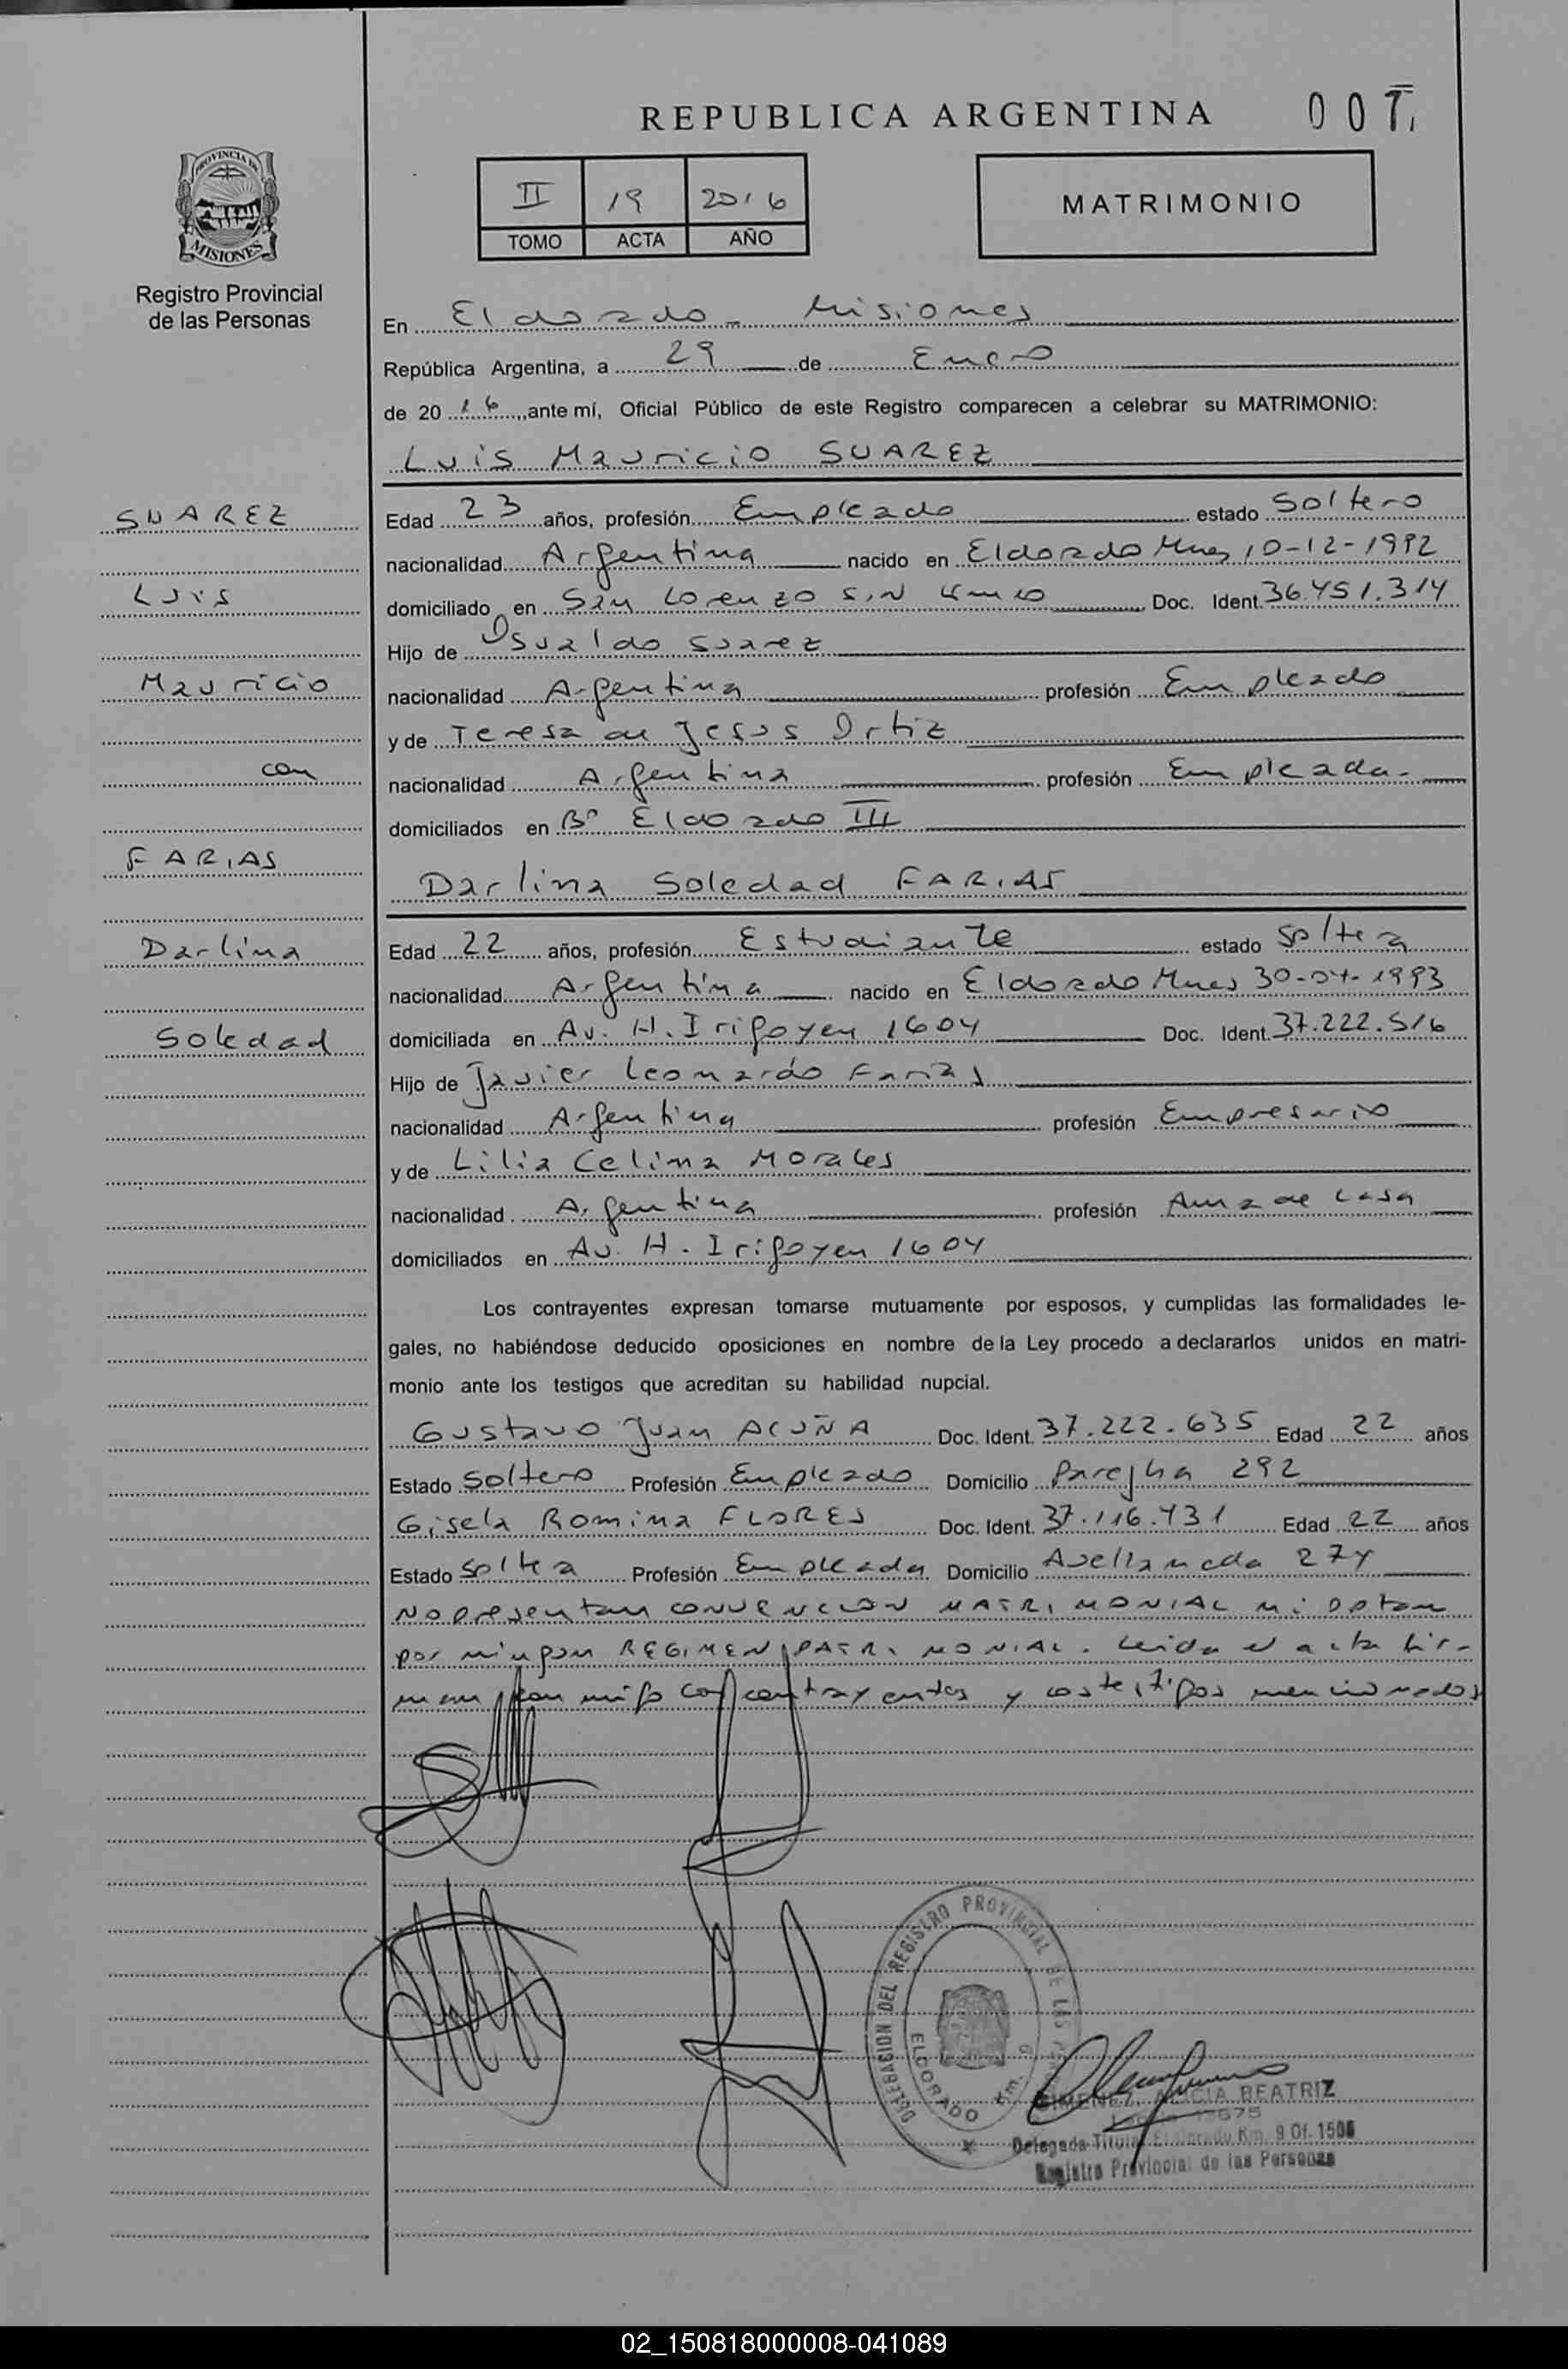 REPUBLICA ARGENTINA 007
PROVINCIA DE
MISIONES
Registro Provincial
de las Personas
II 19 2016
TOMO ACTA AÑO
MATRIMONIO
En Eldorado - Misiones
República Argentina, a 29 de Enero
de 20 16 ,ante mí, Oficial Público de este Registro comparecen a celebrar su MATRIMONIO:
Luis Mauricio SUAREZ
SUAREZ
Luis
Mauricio
con
FARIAS
Darlina
Soledad
Edad 23 años, profesión Empleado estado Soltero
nacionalidad Argentina nacido en Eldorado Mnes 10-12-1992
domiciliado en San Lorenzo S/N Doc. Ident. 36.451.314
Hijo de Osvaldo Suarez
nacionalidad Argentina profesión Empleado
y de Teresa de Jesus Ortiz
nacionalidad Argentina profesión Empleada
domiciliados en Bº Eldorado III
Darlina Soledad FARIAS
Edad 22 años, profesión Estudiante estado Soltera
nacionalidad Argentina nacido en Eldorado Mnes 30-04-1993
domiciliada en Av. H. Irigoyen 1604 Doc. Ident. 37.222.516
Hijo de Javier Leonardo Farias
nacionalidad Argentina profesión Empresario
y de Lilia Celina Morales
nacionalidad Argentina profesión Ama de casa
domiciliados en Av. H. Irigoyen 1604
Los contrayentes expresan tomarse mutuamente por esposos, y cumplidas las formalidades le-
gales, no habiéndose deducido oposiciones en nombre de la Ley procedo a declararlos unidos en matri-
monio ante los testigos que acreditan su habilidad nupcial.
Gustavo Juan ACUÑA Doc. Ident. 37.222.635 Edad 22 años
Estado Soltero Profesión Empleado Domicilio 292
Gisela Romina FLORES Doc. Ident. 37.116.431 Edad 22 años
Estado Soltera Profesión Empleada Domicilio Avellaneda 274
No presentan CONVENCION MATRIMONIAL ni optan
por ningun REGIMEN PATRIMONIAL. Leida el acta fir-
man conmigo los contrayentes y los testigos mencionados
DELEGACION DEL REGISTRO PROVINCIAL DE LAS
ELDORADO Km. 9
GIMENEZ, ALICIA BEATRIZ
Delegada Titular Eldorado Km. 9 Of. 1506
Registro Provincial de las Personas
02_150818000008-041089